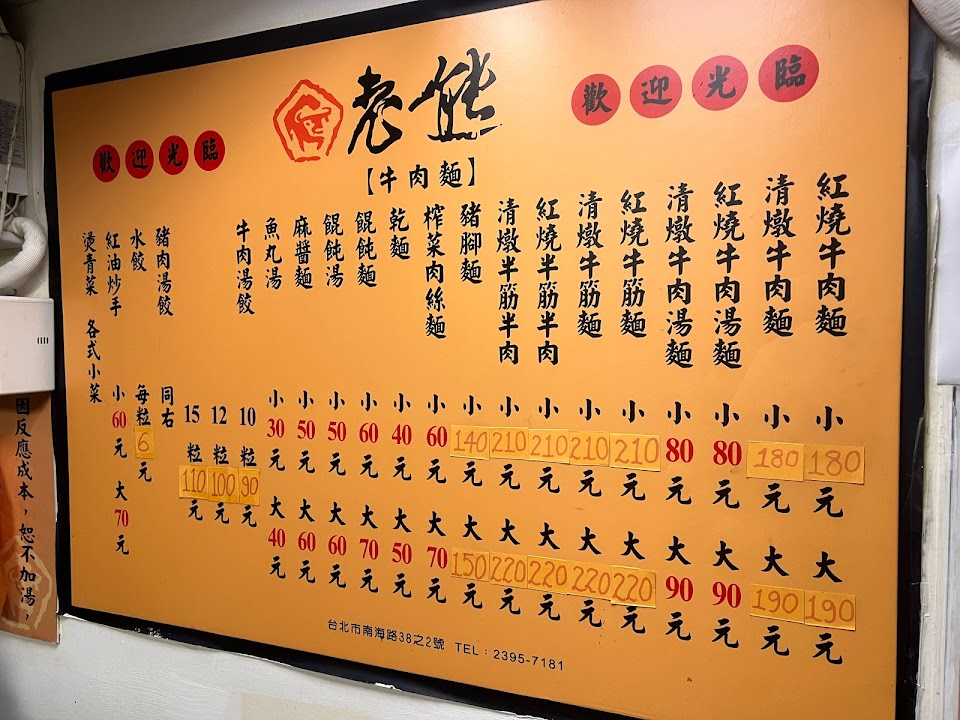 老熊
【牛肉麵】
歡迎光臨
歡迎光臨
紅燒牛肉麵 小 180 元 大 190 元
清燉牛肉麵 小 180 元 大 190 元
紅燒牛肉湯麵 小 80 元 大 90 元
清燉牛肉湯麵 小 80 元 大 90 元
紅燒牛筋麵 小 210 元 大 220 元
清燉牛筋麵 小 210 元 大 220 元
紅燒半筋半肉 小 210 元 大 220 元
清燉半筋半肉 小 210 元 大 220 元
豬腳麵 小 140 元 大 150 元
榨菜肉絲麵 小 60 元 大 70 元
乾麵 小 40 元 大 50 元
餛飩麵 小 60 元 大 70 元
餛飩湯 小 50 元 大 60 元
麻醬麵 小 50 元 大 60 元
魚丸湯 小 30 元 大 40 元
牛肉湯餃 10 粒 90 元
12 粒 100 元
15 粒 110 元
豬肉湯餃 同右
水餃 每粒 6 元
紅油炒手 小 60 元 大 70 元
燙青菜 各式小菜
台北市南海路38之2號 TEL：2395-7181
因反應成本，恕不加湯，